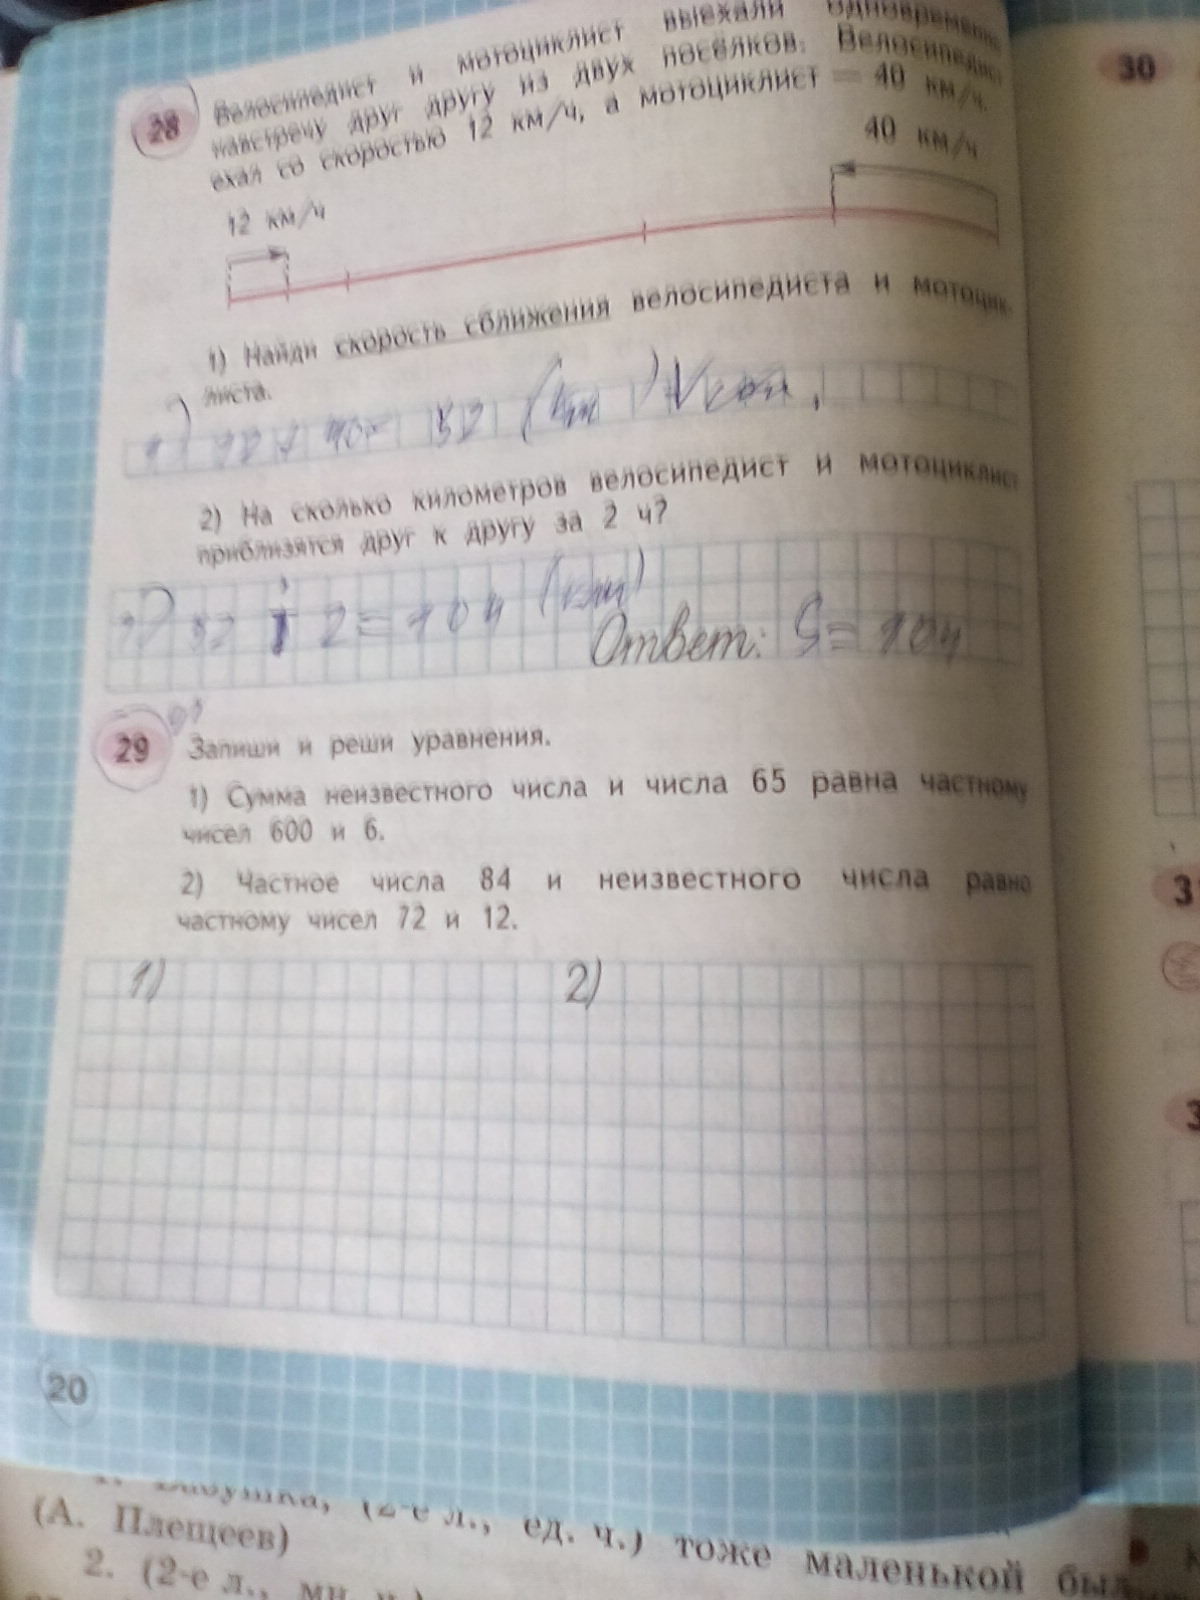 28 Велосипедист и мотоциклист выехали одновременно
навстречу друг другу из двух посёлков. Велосипедист
ехал со скоростью 12 км/ч, а мотоциклист — 40 км/ч.
12 км/ч
40 км/ч
1) Найди скорость сближения велосипедиста и мотоцик-
листа.
1) 12 + 40 = 52 (км)
2) На сколько километров велосипедист и мотоциклист
приблизятся друг к другу за 2 ч?
2) 52 2 = 104 (км)
Ответ: S = 104
29 Запиши и реши уравнения.
1) Сумма неизвестного числа и числа 65 равна частному
чисел 600 и 6.
2) Частное числа 84 и неизвестного числа равно
частному чисел 72 и 12.
1) 2)
20
30
(2-е л., ед. ч.) тоже маленькой был
(А. Плещеев)
2. (2-е л., мн. ч.)